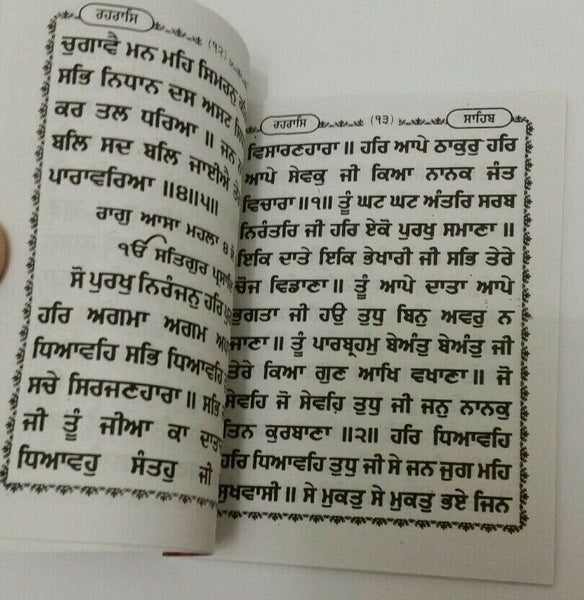 ਰਹਰਾਸਿ
(੧੨)
ਚੁਗਾਵੈ ਮਨ ਮਹਿ ਸਿਮਰਨੁ
ਸਭਿ ਨਿਧਾਨ ਦਸ ਅਸਟ
ਕਰ ਤਲ ਧਰਿਆ ॥ ਜਨ
ਬਲਿ ਸਦ ਬਲਿ ਜਾਈਐ
ਪਾਰਾਵਰਿਆ ॥੪॥੫॥
ਰਾਗੁ ਆਸਾ ਮਹਲਾ ੪
ੴ ਸਤਿਗੁਰ
ਸੋ ਪੁਰਖੁ ਨਿਰੰਜਨੁ ਹਰਿ
ਹਰਿ ਅਗਮਾ ਅਗਮ
ਧਿਆਵਹਿ ਸਭਿ ਧਿਆਵਹਿ
ਸਚੇ ਸਿਰਜਣਹਾਰਾ ॥ ਸਭਿ
ਜੀ ਤੂੰ ਜੀਆ ਕਾ ਦਾਤਾ
ਧਿਆਵਹੁ ਸੰਤਹੁ ਜੀ
ਰਹਰਾਸਿ (੧੩) ਸਾਹਿਬ
ਵਿਸਾਰਣਹਾਰਾ ॥ ਹਰਿ ਆਪੇ ਠਾਕੁਰੁ ਹਰਿ
ਆਪੇ ਸੇਵਕੁ ਜੀ ਕਿਆ ਨਾਨਕ ਜੰਤ
ਵਿਚਾਰਾ ॥੧॥ ਤੂੰ ਘਟ ਘਟ ਅੰਤਰਿ ਸਰਬ
ਨਿਰੰਤਰਿ ਜੀ ਹਰਿ ਏਕੋ ਪੁਰਖੁ ਸਮਾਣਾ ॥
ਇਕਿ ਦਾਤੇ ਇਕਿ ਭੇਖਾਰੀ ਜੀ ਸਭਿ ਤੇਰੇ
ਚੋਜ ਵਿਡਾਣਾ ॥ ਤੂੰ ਆਪੇ ਦਾਤਾ ਆਪੇ
ਭੁਗਤਾ ਜੀ ਹਉ ਤੁਧੁ ਬਿਨੁ ਅਵਰੁ ਨ
ਜਾਣਾ ॥ ਤੂੰ ਪਾਰਬ੍ਰਹਮੁ ਬੇਅੰਤੁ ਬੇਅੰਤੁ ਜੀ
ਤੇਰੇ ਕਿਆ ਗੁਣ ਆਖਿ ਵਖਾਣਾ ॥ ਜੋ
ਸੇਵਹਿ ਜੋ ਸੇਵਹਿ ਤੁਧੁ ਜੀ ਜਨੁ ਨਾਨਕੁ
ਤਿਨ ਕੁਰਬਾਣਾ ॥੨॥ ਹਰਿ ਧਿਆਵਹਿ
ਹਰਿ ਧਿਆਵਹਿ ਤੁਧੁ ਜੀ ਸੇ ਜਨ ਜੁਗ ਮਹਿ
ਸੁਖਵਾਸੀ ॥ ਸੇ ਮੁਕਤੁ ਸੇ ਮੁਕਤੁ ਭਏ ਜਿਨ